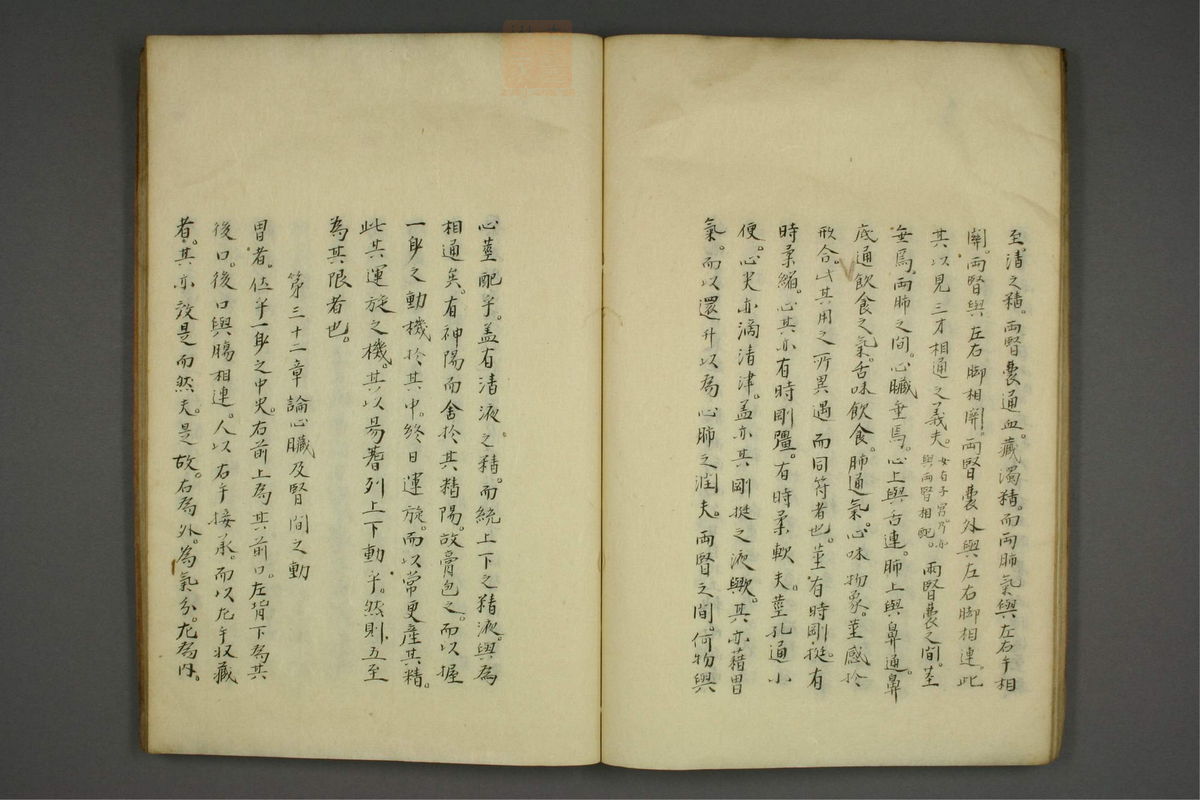 至清之精。兩腎囊通血。藏濁精。而兩肺氣與左右手相
關。兩腎與左右脚相關。兩腎囊外與左右脚相連。此
其以見三才相通之義夫。女有子宮乃亦與兩腎相配。兩腎囊之間。莖
垂焉。兩肺之間。心臟垂焉。心上與舌連。肺上與鼻通。鼻
底通飲食之氣。舌味飲食。肺通氣。心味物象。莖感於
形合。此其用之所異遇而同符者也。莖有時剛挺。有
時柔縮。心其亦有時剛彊。有時柔軟夫。莖孔通小
便。心尖亦滴清津。盖亦其剛挺之液歟。其亦藉胃
氣。而以還升以為心肺之潤夫。兩腎之間。何物與
心莖配乎。盖有清液之精。而統上下之精液。與為
相通矣。有神陽而舍於其精陽。故膏包之。而以握
一身之動機於其中。終日運旋。而以常更產其精。
此其運旋之機。其以昜著列上下動乎。然則五至
為其限者也。
第三十二章論心臟及腎間之動
胃者。位乎一身之中央。右前上為其前口。左背下為其
後口。後口與腸相連。人以右手接承。而以左手収藏
者。其亦效是而然夫。是故。右為外。為氣分。左為內。